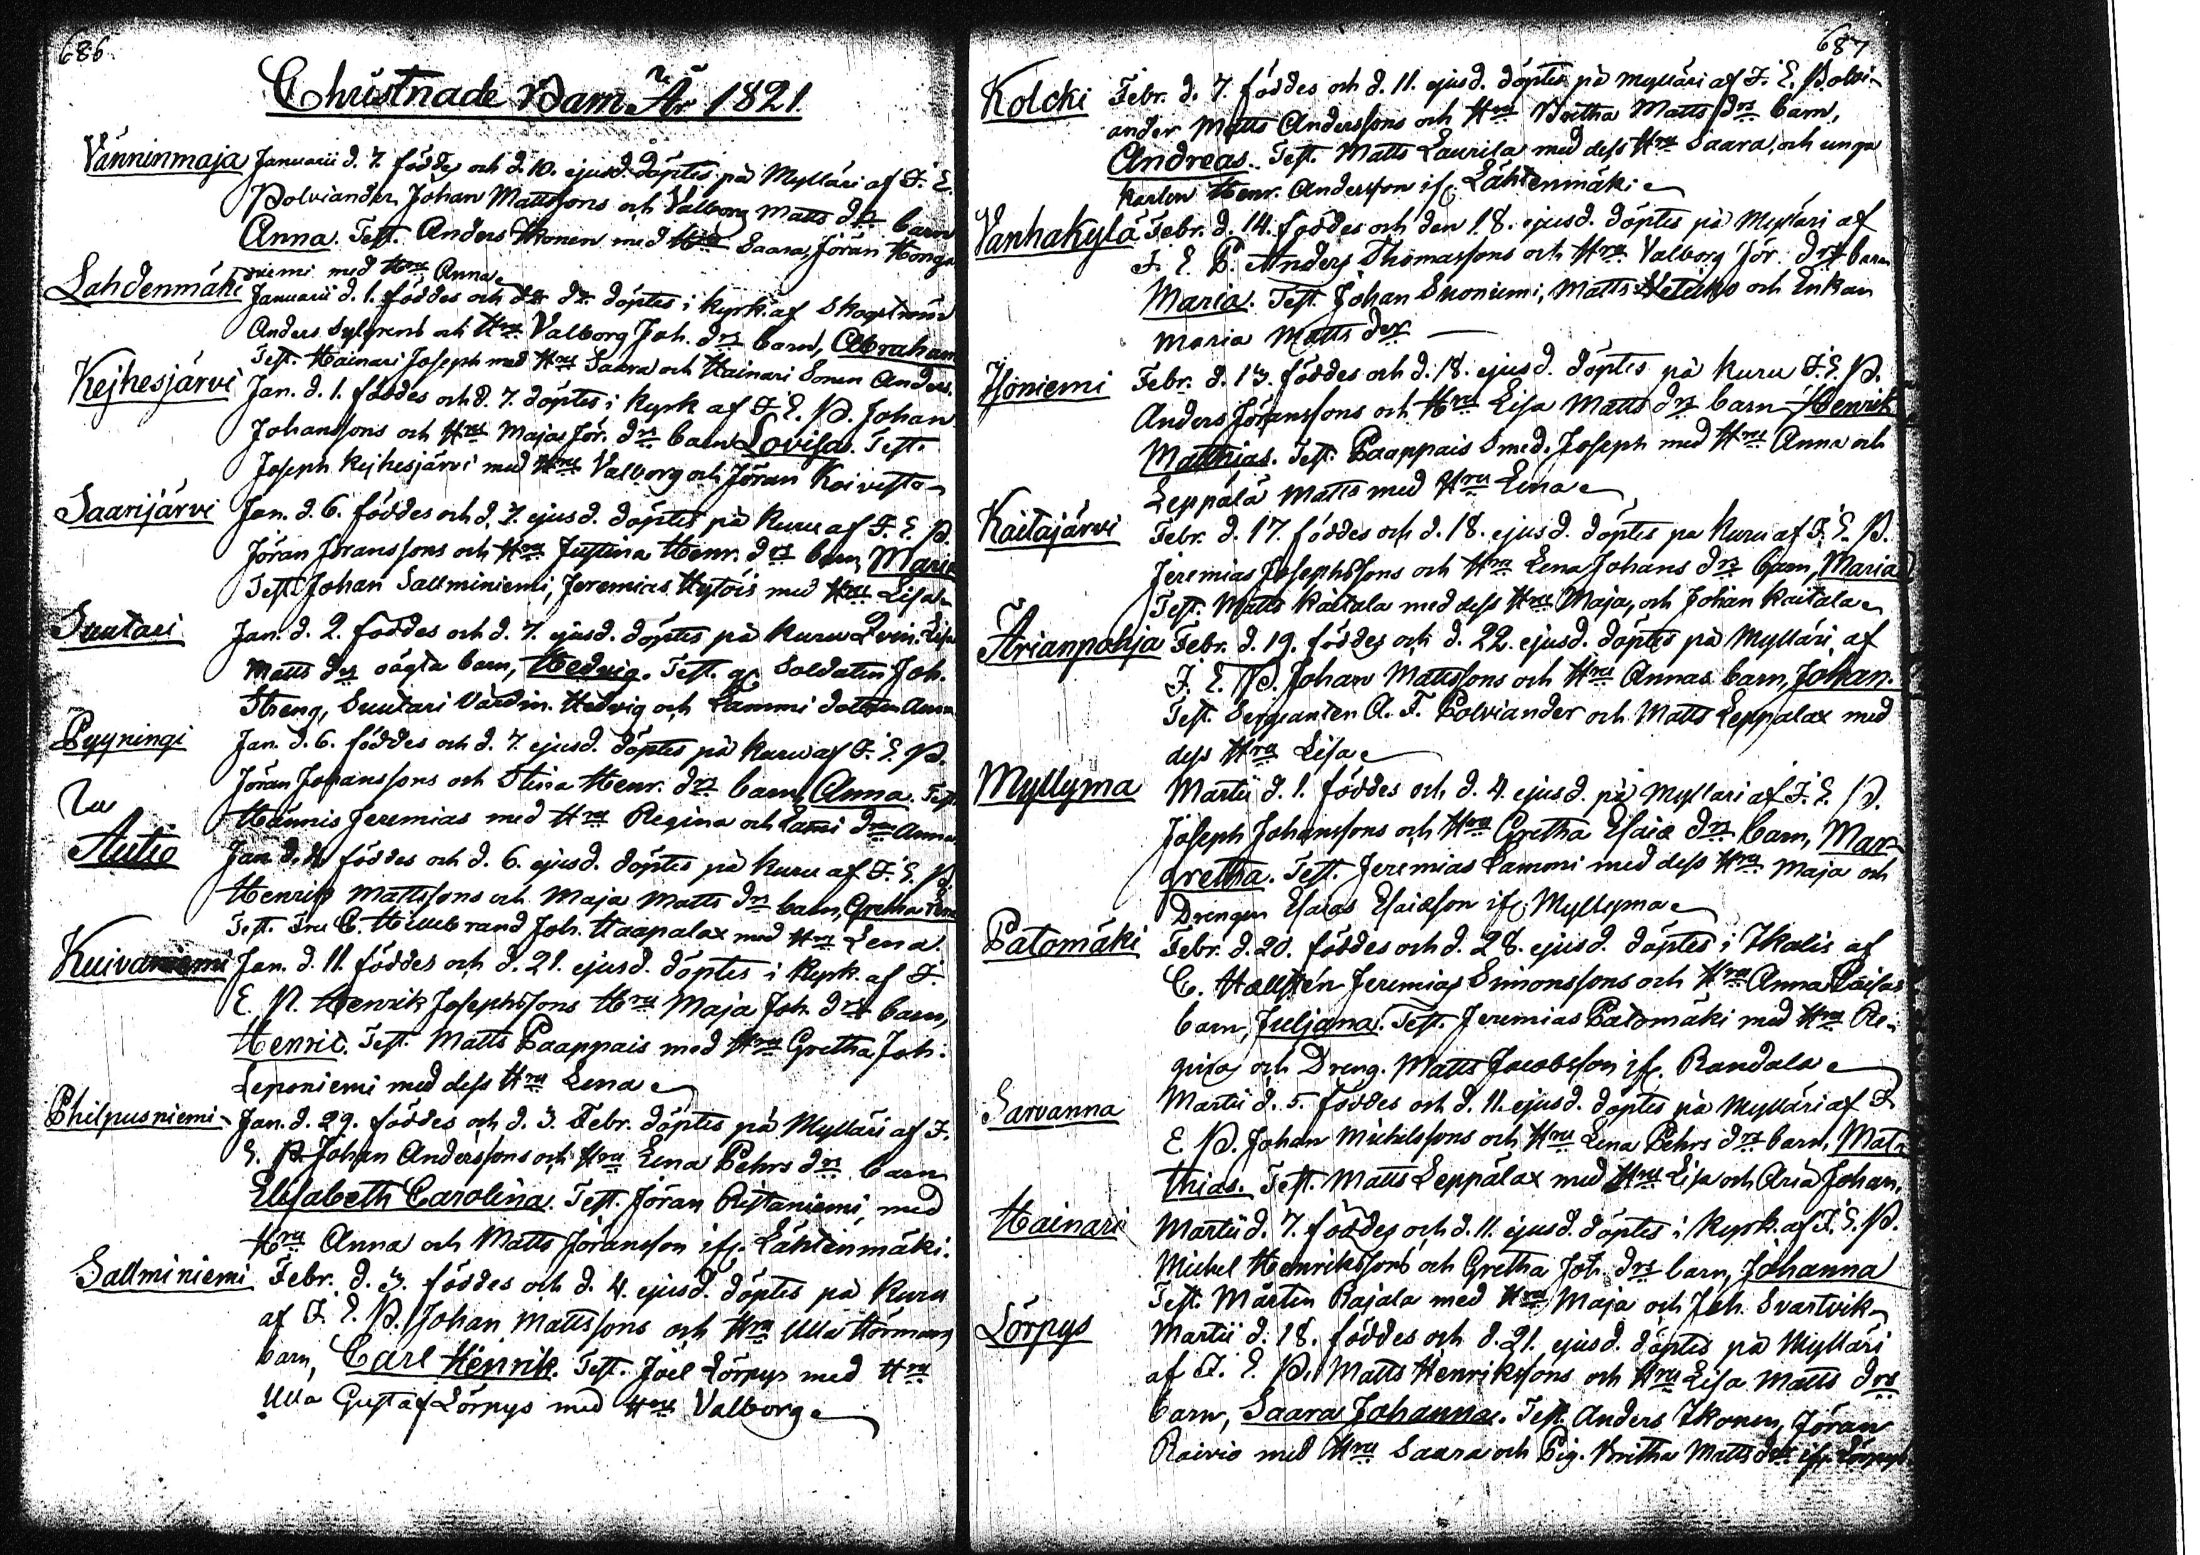 686
Christnade Barn År 1821.
Vänninmaja Januarii d. 7. föddes och d. 10. ejusd. döptes på Mylläri af F. E.
Polviander Johan Mattssons och Valborg Matts drs barn
Anna. Test. Anders Ikonen med Hru Saara, Jöran Honga
niemi med Hru Anna
Lahdenmäki Januarii d. 1. föddes och do do döptes i kyrk. af Skogström
Anders Sylfrens och Hru Valborg Joh. drs barn, Abraham
Test. Hainari Joseph med Hru Saara och Hainari Sonen Anders.
Kejhesjärvi Jan. d. 1. föddes och d. 7. döptes i kyrk af F. E. P. Johan
Johanssons och Hrus Maja Jör. drs barn Lovisa. Test.
Joseph Kejhesjärvi med Hru Valborg och Jöran Koivisto
Saarijärvi Jan. d. 6. föddes och d. 7. ejusd. döptes på Kuru af F. E. P.
Jöran Jöranssons och Hru Justina Henr. drs barn, Maria
Test. Johan Sallminiemi, Jeremias Hytöis med Hru Lisa
Suutari Jan. d. 2. föddes och d. 7. ejusd. döptes på Kuru Qvin. Lisa
Matts drs oägta barn, Hedvig. Test. Soldaten Joh.
Streng, Suutari Värdin. Hedvig och Lammi dottren Anna
Pyyningi Jan. d. 6. föddes och d. 7. ejusd. döptes på Kuru af F. E. P.
Jöran Johanssons och Stina Henr. drs barn, Anna. Test.
Hännis Jeremias med Hru Regina och Lammi drn Anna
Autio Jan. d. föddes och d. 6. ejusd. döptes på Kuru af F. E. P.
Henrik Mattssons och Maja Matts drs barn, Gretha
Test. Fru C. Hillebrand Joh. Haapalax med Hru Lena.
Kuivaniemi Jan. d. 11. föddes och d. 21. ejusd. döptes i kyrk. af F.
E. P. Henrik Josephssons Hru Maja Joh. drs barn,
Henric. Test. Matts Paappais med Hru Gretha, Joh.
Leponiemi med dess Hru Lena
Philpusniemi Jan. d. 29. föddes och d. 3. Febr. döptes på Mylläri af F.
E. P. Johan Anderssons och Hru Lena Pehrs drs barn
Elisabeth Carolina. Test. Jöran Ristaniemi med
Hru Anna och Matts Jöransson ifr. Lähtenmäki.
Sallminiemi Febr. d. 3. föddes och d. 4. ejusd. döptes på Kuru
af F. E. P. Johan Mattssons och Hru Ulla Hörmans
barn, Carl Henrik. Test. Joel Lörpys med Hru
Ulla Gustaf Lörpys med Hru Valborg
687
Kolcki Febr. d. 7. föddes och d. 11. ejusd. döptes på Mylläri af F. E. Polvi-
ander Matts Anderssons och Hru Britha Matts drs barn,
Andreas. Test. Matts Laurila med dess Hru Saara, och unga
karlen Henr. Andersson ifr. Lähtenmäki
Vanhakylä Febr. d. 14. föddes och den 18. ejusd. döptes på Mylläri af
F. E. P. Anders Thomassons och Hru Valborg Jör. drs barn
Maria. Test. Johan Suoniemi, Matts och Enkan
Maria Matts der
Isoniemi Febr. d. 13. föddes och d. 18. ejusd. döptes på Kuru F. E. P.
Anders Jöranssons och Hru Lisa Matts drs barn Henrik
Matthias. Test. Paappais Smed. Joseph med Hru Anna och
Leppälä Matts med Hru Lena
Kaitajärvi Febr. d. 17. föddes och d. 18. ejusd. döptes på Kuru af F. E. P.
Jeremias Josephssons och Hru Lena Johans drs barn, Maria
Test. Matts Kaitala med dess Hru Maja, och Johan Kaitala
Ärianpohja Febr. d. 19. föddes och d. 22. ejusd. döptes på Mylläri af
F. E. P. Johan Mattssons och Hru Annas barn, Johan.
Test. Sergeanten A. F. Polviander och Matts Leppalax med
dess Hru Lisa
Myllyma Martii d. 1. föddes och d. 4. ejusd. på Myllari af F. E. P.
Joseph Johanssons och Hru Gretha Esaiæ drs barn, Mar-
gretha. Test. Jeremias Lammi med dess Hru Maja och
Drengen Esaias Esaiasson ifr. Myllyma
Patomäki Febr. d. 20. föddes och d. 28. ejusd. döptes i Ikalis af
C. Hællstén Jeremias Simonssons och Hru Anna Caisas
barn, Juljana. Test. Jeremias Patomäki med Hru Re-
gina, och Dreng. Matts Jacobsson ifr. Randala
Sarvanna Martii d. 5. föddes och d. 11. ejusd. döptes på Mylläri af F.
E. P. Johan Michelssons och Hru Lena Pehrs drs barn, Mat-
thias. Test. Matts Leppälax med Hru Lisa och Aria Johan.
Hainari Martii d. 7. föddes och d. 11. ejusd. döptes i kyrk. af F. E. P.
Michel Henrikssons och Gretha Joh. drs barn, Johanna
Test. Mårten Rajala med Hru Maja och Joh. Svartvik
Lörpys Martii d. 18. föddes och d. 21. ejusd. döptes på Mylläri
af F. E. P. Matts Henrikssons och Hru Lisa Matts drs
barn, Saara Johanna. Test. Anders Ikonen, Jöran
Roivio med Hru Saara och Pig. Britha Matts der ifr. Lörpys